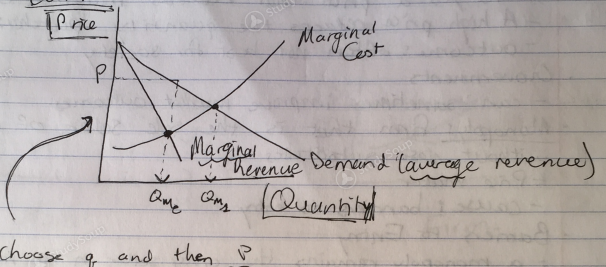 Price
Marginal
Cost
P
Marginal
Revenue
Demand (average revenue)
Qm
Qm
Quantity
Choose q and then P